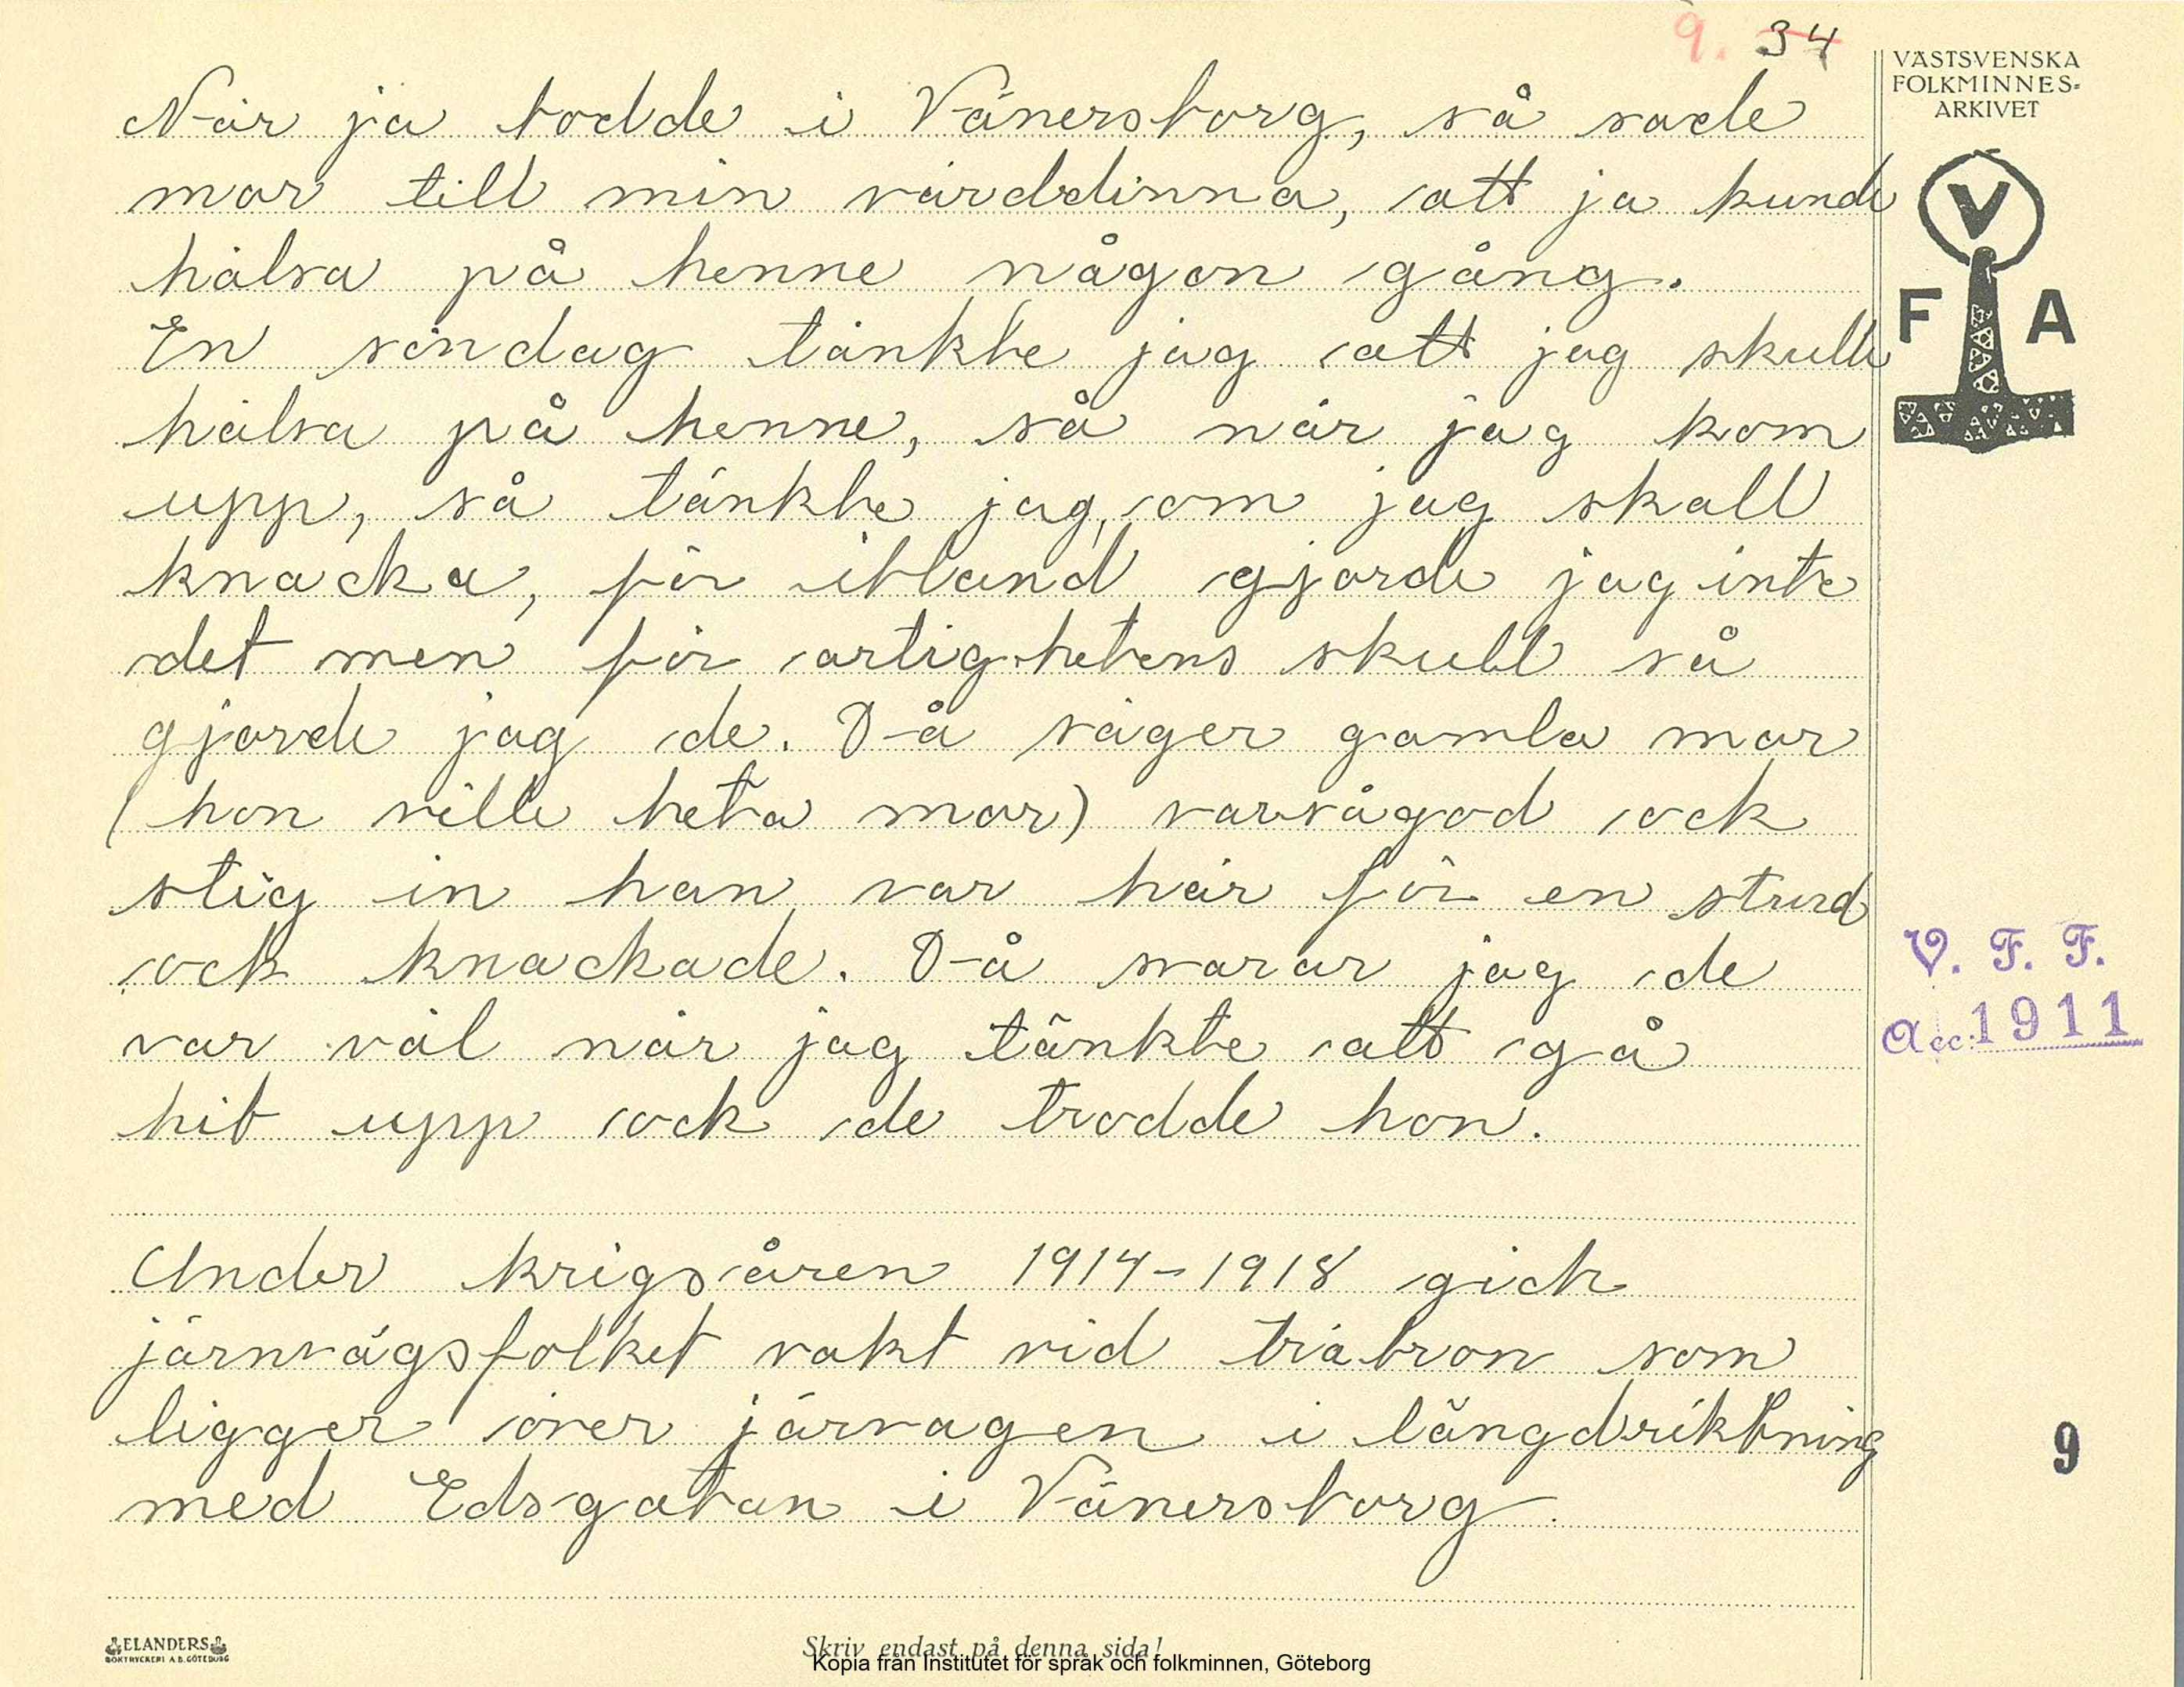 9. 34
VÄSTSVENSKA
FOLKMINNES-
ARKIVET
När ja bodde i Vänersborg, så sade
mor till min värddinna, att ja kunde
hälsa på henne någon gång.
En söndag tänkte jag att jag skulle
hälsa på henne, så när jag kom
upp, så tänkte jag, om jag skall
knacka, för ibland gjorde jag inte
det men för artighetens skull så
gjorde jag de. Då säger gamla mor
(hon ville heta mor) varsågod ock
stig in han var här för en stund
ock knackade. Då svarar jag de
var väl när jag tänkte att gå
hit upp ock de trodde hon.
Under krigsåren 1914-1918 gick
järnvägsfolket vakt vid träbron som
ligger över järvagen i längdriktning
med Edsgatan i Vänersborg.
V
F A
V. F. F.
Acc. 1911
9
ELANDERS
BOKTRYCKERI A.B. GÖTEBORG
Skriv endast på denna sida!
Kopia från Institutet för språk och folkminnen, Göteborg